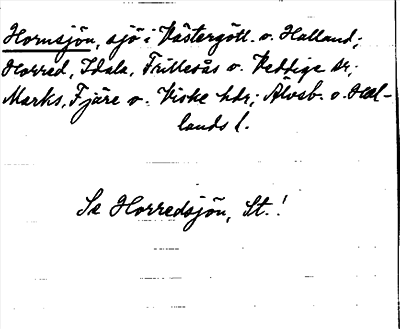 Hornsjön, sjö i Västergötl. o. Halland;
Horred, Idala, Frillesås o. Veddige sr;
Marks, Fjäre o. Viske hdr; Älvsb. o. Hal-
lands l.
Se Horredsjön, St.!